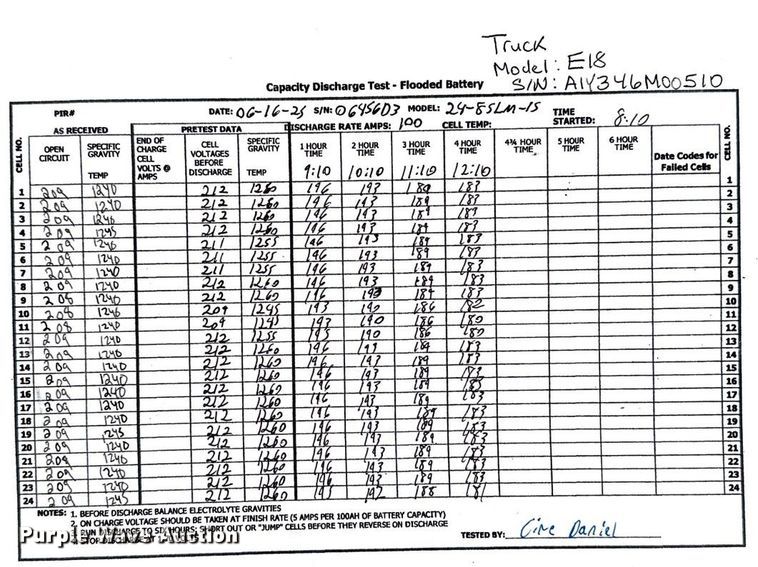 Truck
Model: E18
S/N: A1Y346M00510
Capacity Discharge Test - Flooded Battery
PIR# DATE: 06-16-25 S/N: 06456D3 MODEL: 24-85LM-15 TIME STARTED: 8:10
AS RECEIVED PRETEST DATA DISCHARGE RATE AMPS: 100 CELL TEMP:
CELL NO. OPEN CIRCUIT SPECIFIC GRAVITY TEMP END OF CHARGE CELL VOLTS @ AMPS CELL VOLTAGES BEFORE DISCHARGE SPECIFIC GRAVITY TEMP 1 HOUR TIME 2 HOUR TIME 3 HOUR TIME 4 HOUR TIME 4¾ HOUR TIME 5 HOUR TIME 6 HOUR TIME Date Codes for Failed Cells CELL NO.
9:10 10:10 11:10 12:10
1 209 1240 212 1260 196 193 189 183 1
2 209 1240 212 1260 196 193 189 183 2
3 209 1240 212 1260 196 193 189 183 3
4 209 1245 212 1260 196 193 189 183 4
5 209 1245 211 1255 196 193 189 183 5
6 209 1240 211 1255 196 193 189 183 6
7 209 1240 211 1255 196 193 189 183 7
8 209 1240 212 1260 196 193 189 183 8
9 208 1240 212 1260 196 193 189 183 9
10 208 1240 209 1245 193 190 186 180 10
11 208 1240 209 1245 193 190 186 180 11
12 209 1240 212 1255 193 190 186 180 12
13 209 1240 212 1260 196 193 189 183 13
14 209 1240 212 1260 196 193 189 183 14
15 209 1240 212 1260 196 193 189 183 15
16 209 1240 212 1260 196 193 189 183 16
17 209 1240 212 1260 196 193 189 183 17
18 209 1240 212 1260 196 193 189 183 18
19 209 1245 212 1260 196 193 189 183 19
20 209 1240 212 1260 196 193 189 183 20
21 209 1240 212 1260 196 193 189 183 21
22 209 1240 212 1260 196 193 189 183 22
23 209 1240 212 1260 196 193 189 183 23
24 209 1245 212 1260 195 192 188 181 24
NOTES: 1. BEFORE DISCHARGE BALANCE ELECTROLYTE GRAVITIES
2. ON CHARGE VOLTAGE SHOULD BE TAKEN AT FINISH RATE (5 AMPS PER 100AH OF BATTERY CAPACITY)
3. RUN DISCHARGE TO SIX HOURS; SHORT OUT OR "JUMP" CELLS BEFORE THEY REVERSE ON DISCHARGE
4. STOP
TESTED BY: Daniel
Purple Wave Auction